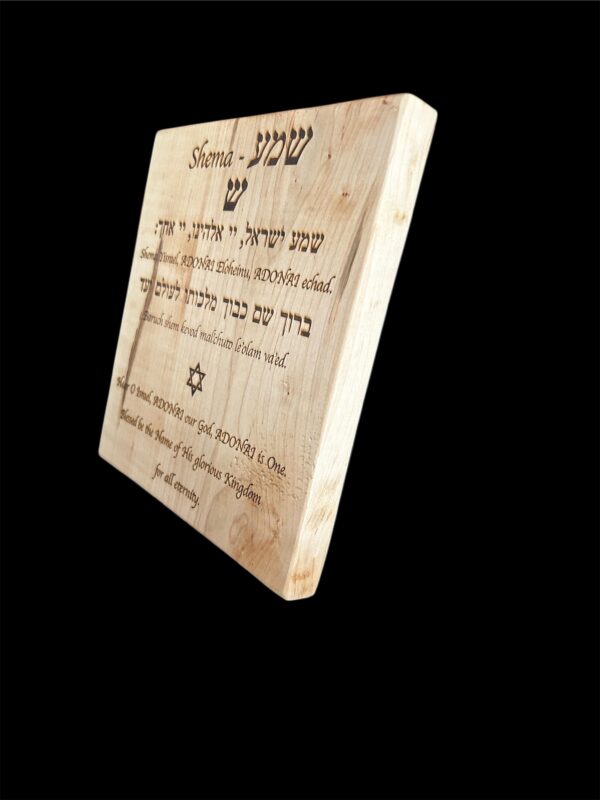 Shema - שמע
ש
שמע ישראל, יי אלהינו, יי אחד:
Shema Yisrael, ADONAI Eloheinu, ADONAI echad.
ברוך שם כבוד מלכותו לעולם ועד
Baruch shem kevod malchuto le'olam va'ed.
Hear O Israel, ADONAI our God, ADONAI is One.
Blessed be the Name of His glorious Kingdom
for all eternity.